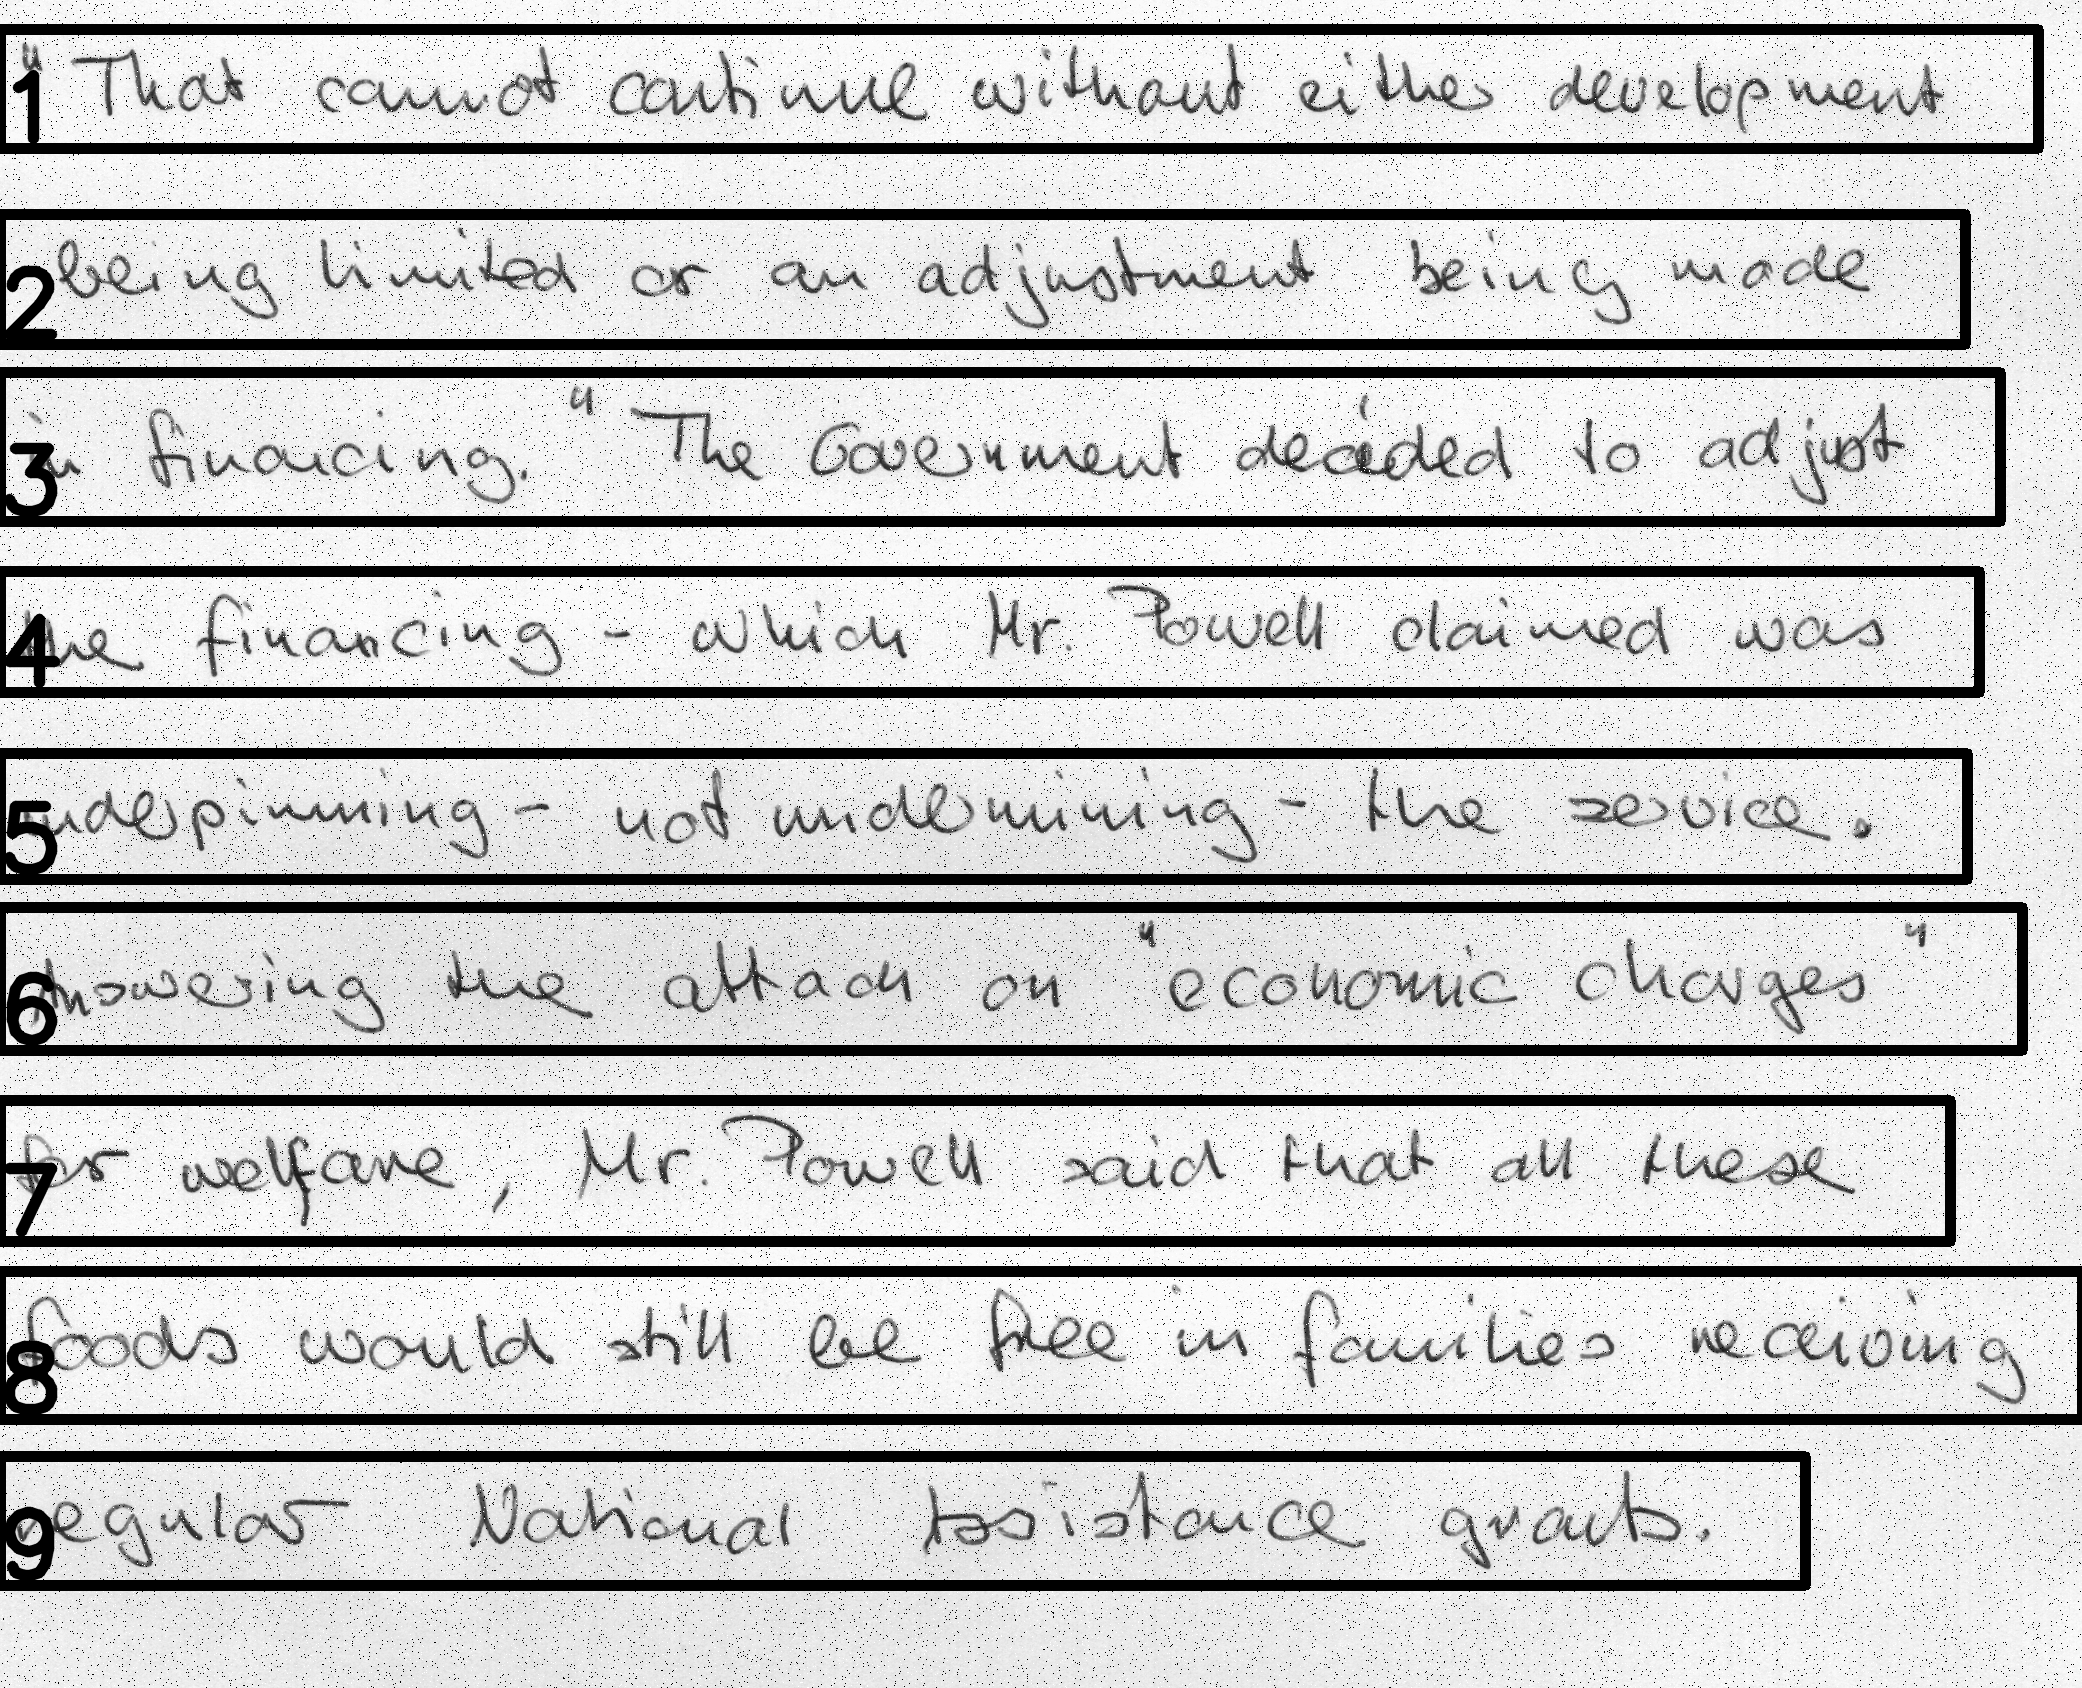 "That cannot continue without either development
being limited or an adjustment being made
in financing." The Government decided to adjust
the financing - which Mr. Powell claimed was
underpinning - not undermining - the service.
Answering the attack on "economic charges"
for welfare, Mr. Powell said that all these
foods would still be free in families receiving
regular National Assistance grants.